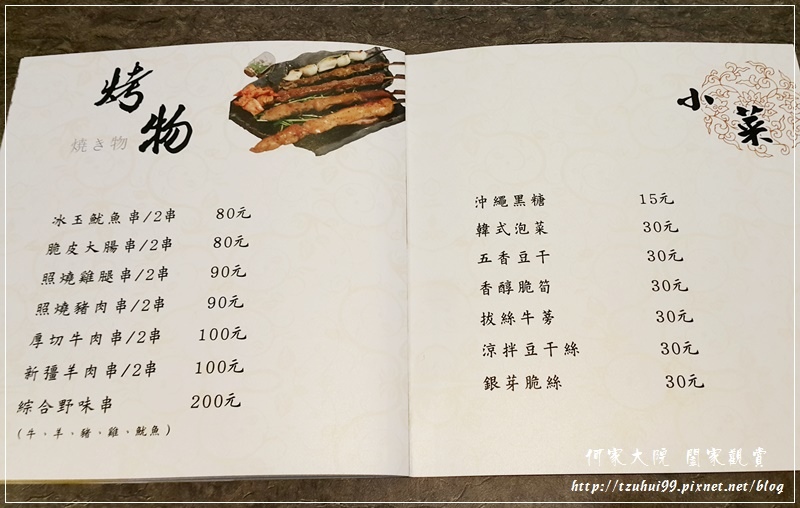 烤物
燒き物
冰玉魷魚串/2串 80元
脆皮大腸串/2串 80元
照燒雞腿串/2串 90元
照燒豬肉串/2串 90元
厚切牛肉串/2串 100元
新疆羊肉串/2串 100元
綜合野味串 200元
(牛、羊、豬、雞、魷魚)
小菜
沖繩黑糖 15元
韓式泡菜 30元
五香豆干 30元
香醇脆筍 30元
拔絲牛蒡 30元
涼拌豆干絲 30元
銀芽脆絲 30元
何家大院 闔家觀賞
http://tzuhui99.pixnet.net/blog